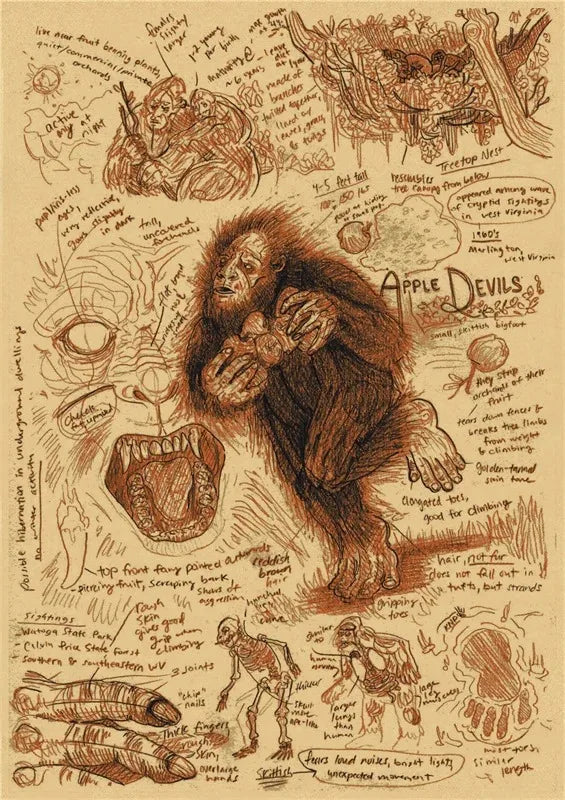 live near fruit bearing plants,
quiet/commercial/private
orchards
active
only at
night
females
slightly
larger
1-2 young
per birth
~6 years
made of
branches
twisted together,
lined w/
leaves, grass
& twigs
Treetop Nest
resembles
tree canopy from below
appeared among wave
of cryptid sightings
in west virginia
1960's
Marlington,
West Virginia
4-5 feet tall
pupil/iris-less
eyes,
very reflective,
glow slightly
in dark
tall,
uncovered
foreheads
APPLE DEVILS
small, skittish bigfoot
they strip
orchards of their
fruit
tears down fences &
breaks tree limbs
from weight
& climbing
golden-tanned
skin tone
elongated toes,
good for climbing
hair, not fur
does not fall out in
tufts, but strands
gripping
toes
possible hibernation in underground dwellings
no winter activity
top front fang pointed outwards
piercing fruit, scraping bark,
shows of
aggression
reddish
brown
hair
Sightings
Watoga State Park,
Calvin Price State Forest
southern & southeastern WV
rough
skin
gives good
grip when
climbing
3 joints
"chip"
nails
thick fingers
rough
skin,
overlarge
hands
similar to
human
larger
lungs
than
human
large
skittish
fears loud noises, bright lights,
unexpected movement
similar
length